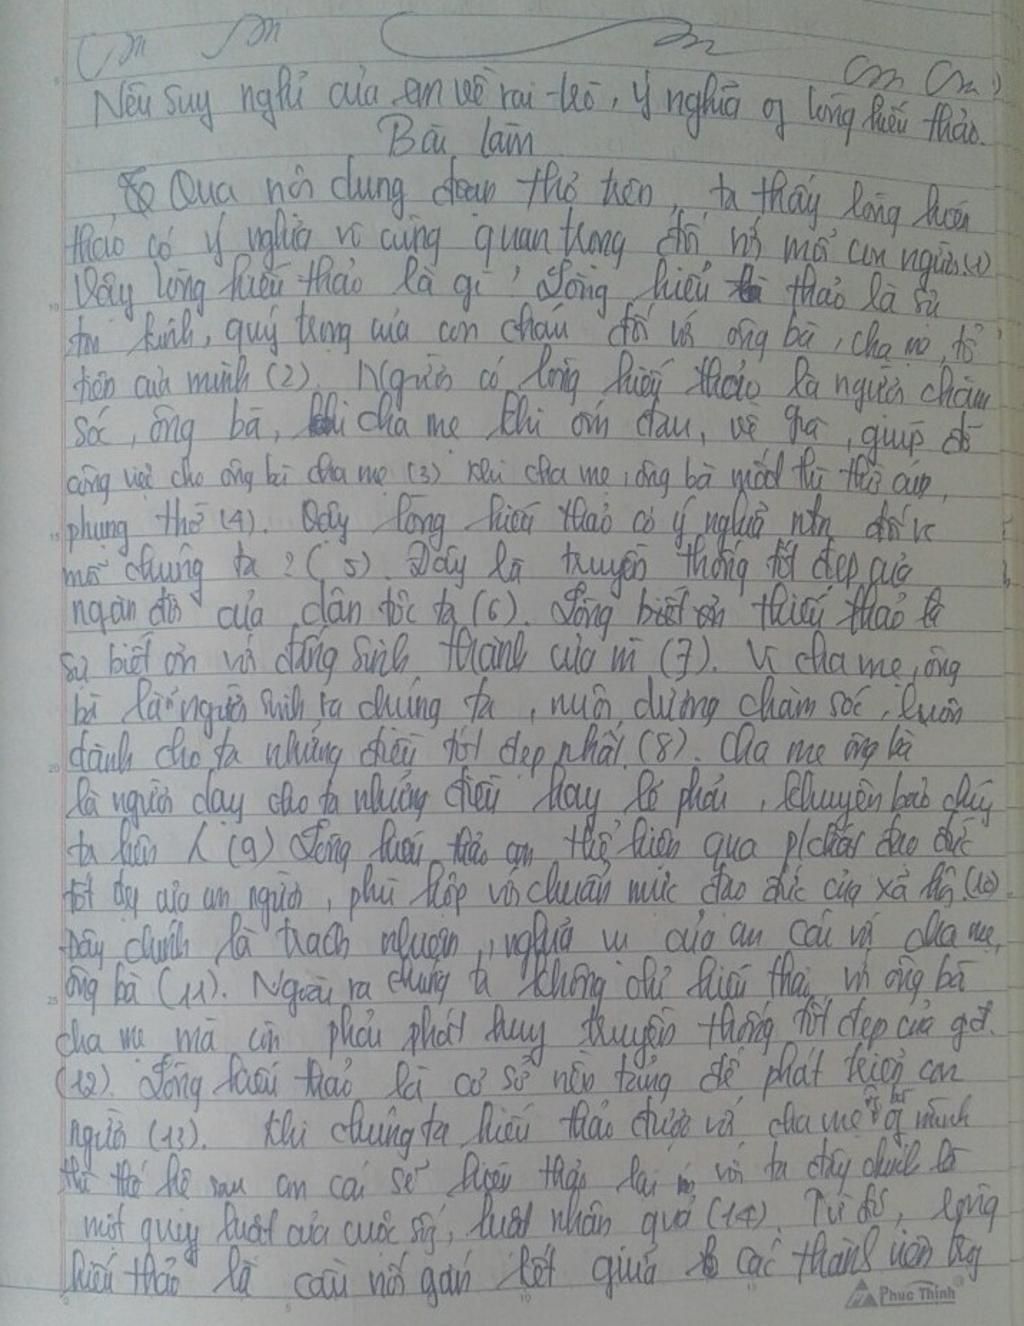 Nêu suy nghĩ của em về vai trò, ý nghĩa of lòng hiếu thảo.
Bài làm
Qua nội dung đoạn thơ trên, ta thấy lòng hiếu
thảo có ý nghĩa vô cùng quan trọng đối với mỗi con người (1)
Vậy lòng hiếu thảo là gì? Lòng hiếu thảo là sự
tôn kính, quý trọng của con cháu đối với ông bà, cha mẹ, tổ
tiên của mình (2). Người có lòng hiếu thảo là người chăm
sóc, ông bà, cha mẹ khi ốm đau, về già, giúp đỡ
công việc cho ông bà cha mẹ (3) Khi cha mẹ, ông bà mất thì thờ cúng,
phụng thờ (4). Vậy lòng hiếu thảo có ý nghĩa ntn đối với
mỗi chúng ta? (5). Đây là truyền thống tốt đẹp của
ngàn đời của dân tộc ta (6). Lòng biết ơn hiếu thảo là
sự biết ơn với đấng sinh thành của m (7). Vì cha mẹ, ông
bà là người sinh ra chúng ta, nuôi dưỡng chăm sóc, luôn
dành cho ta những điều tốt đẹp nhất (8). Cha mẹ ông bà
là người dạy cho ta những điều hay lẽ phải, khuyên bảo chúng
ta (9) Lòng hiếu thảo còn thể hiện qua p/chất đạo đức
tốt đẹp của con người, phù hợp với chuẩn mực đạo đức của xã hội (10).
Đây chính là trách nhiệm, nghĩa vụ của con cái với cha mẹ,
ông bà (11). Ngoài ra chúng ta không chỉ hiếu thảo với ông bà
cha mẹ mà còn phải phát huy truyền thống tốt đẹp của gđ.
(12). Lòng hiếu thảo là cơ sở nền tảng để phát triển con
người (13). Khi chúng ta hiếu thảo được với cha mẹ ông bà of mình
thì thế hệ sau con cái sẽ hiếu thảo lại với ta đây chính là
một quy luật của cuộc sống, luật nhân quả (14). Từ đó, lòng
hiếu thảo là cầu nối gắn kết giữa các thành viên trong
Phuc Thinh